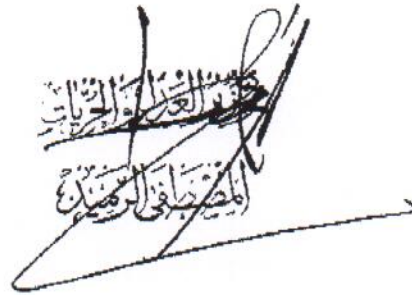 وزير العدل والحريات
المصطفى الرميد